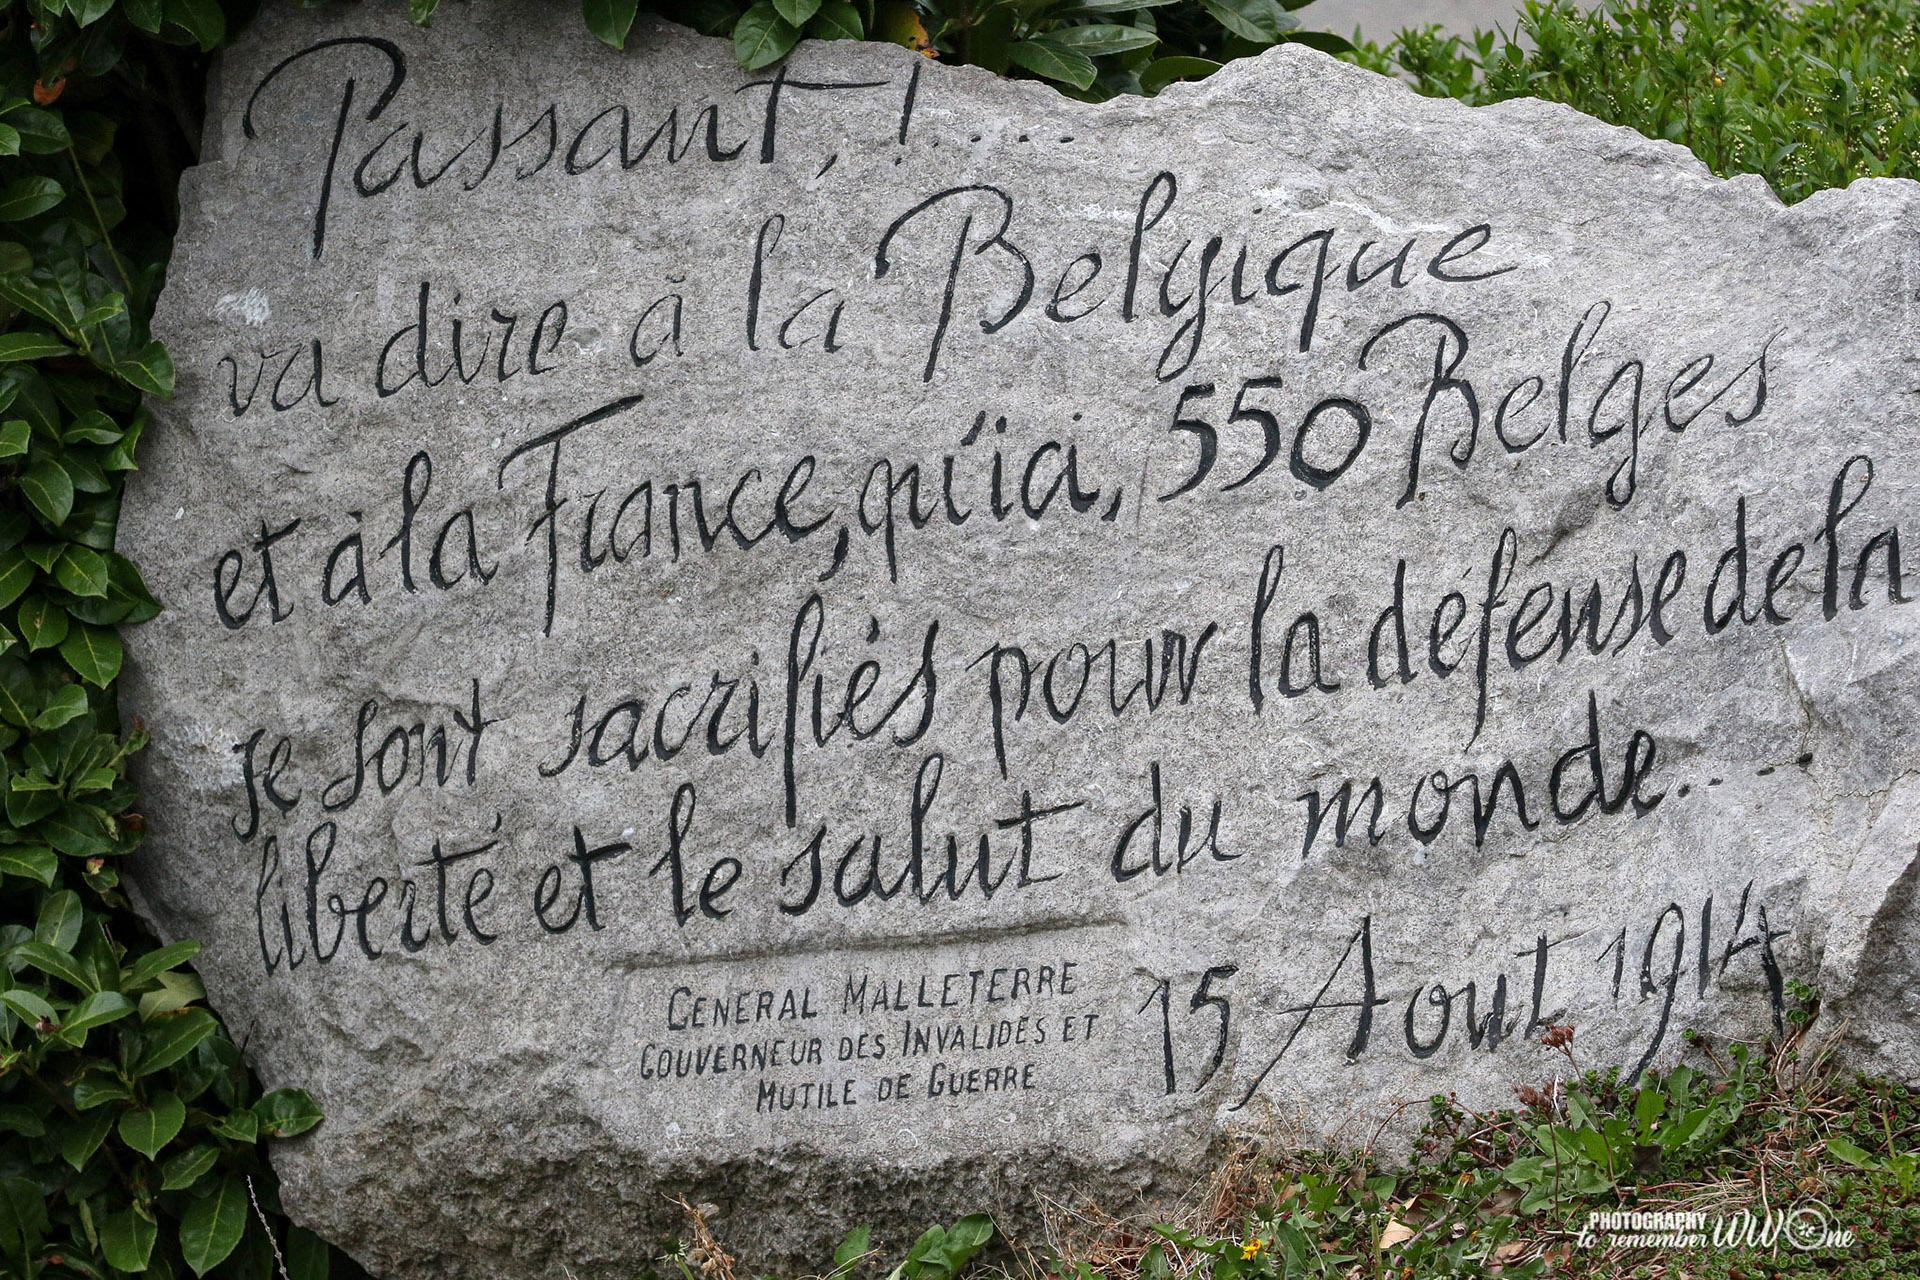 Passant, !....
va dire à la Belgique
et à la France, qu'ici, 550 Belges
se sont sacrifiés pour la défense de la
liberté et le salut du monde....
15 Aout 1914
GENERAL MALLETERRE
GOUVERNEUR DES INVALIDES ET
MUTILE DE GUERRE
PHOTOGRAPHY
to remember WWOne